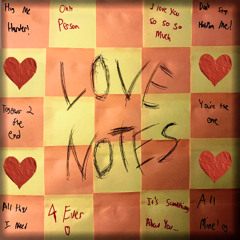 Hug Me
Harder!
Only
Person
I love you
so so so so
Much
Don't Stop
Me!
LOVE
Together 2
the
end
You're the
one
NOTES
All that
I Need
4 Ever
It's Something
About You...
All
Mine!